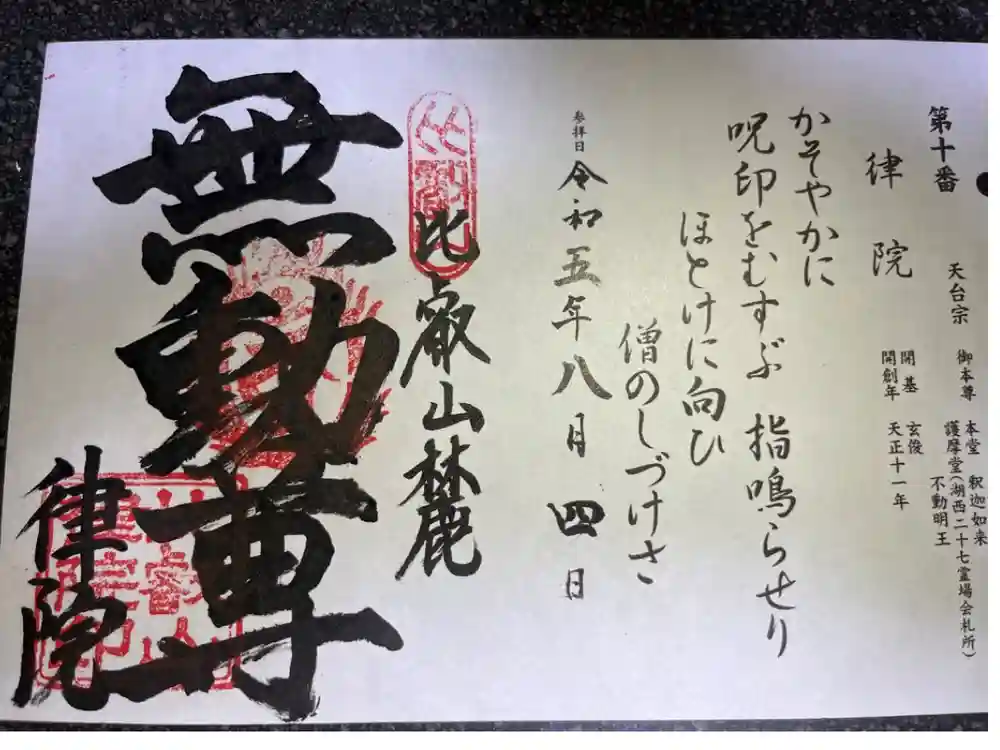 第十番
天台宗
御本尊 本堂 釈迦如来
護摩堂(湖西二十七霊場会札所)
不動明王
律院
開基 玄俊
開創年 天正十一年
かそやかに
呪印をむすぶ 指鳴らせり
ほとけに向ひ
僧のしづけさ
参拝日 令和五年八月四日
比叡山麓
無動尊
律院